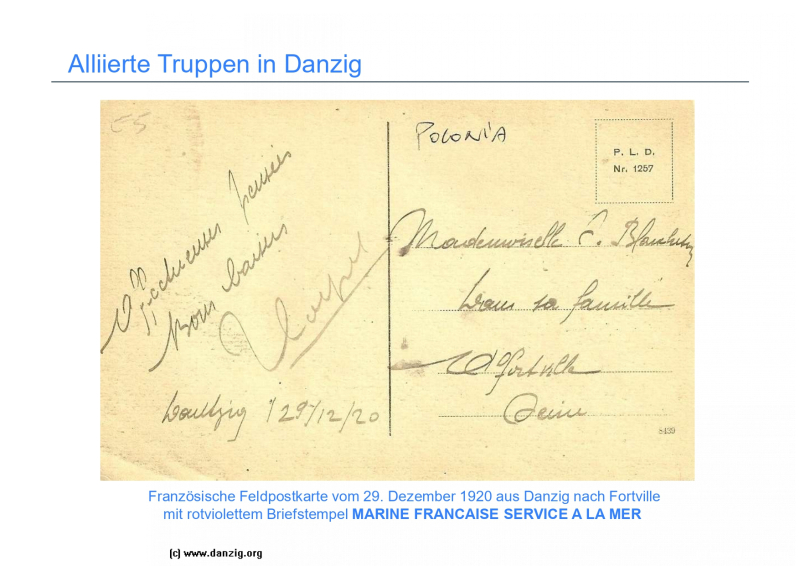 Alliierte Truppen in Danzig
E5
POLONIA
P. L. D.
Nr. 1257
Affectueuses pensées
Bons baisers
Dantzig / 29/12/20
Mademoiselle E.
Dans sa famille
Alfortville
Seine
5139
Französische Feldpostkarte vom 29. Dezember 1920 aus Danzig nach Fortville
mit rotviolettem Briefstempel MARINE FRANCAISE SERVICE A LA MER
(c) www.danzig.org